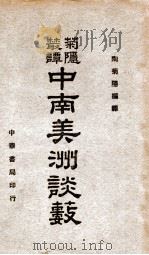 陶菊隱編譯
菊隱
叢譚
中南美洲談藪
中華書局印行